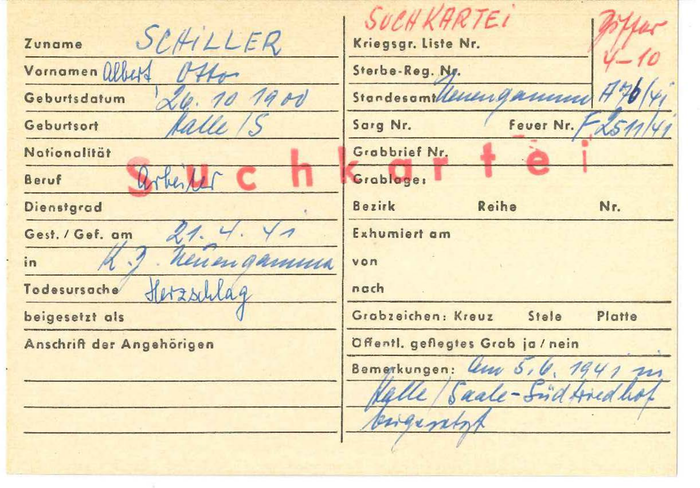 SUCHKARTEI
Ziffer
4-10
Zuname SCHILLER
Vornamen Albert Otto
Geburtsdatum 26.10 1900
Geburtsort Halle/S
Nationalität
Beruf Arbeiter
Dienstgrad
Gest. / Gef. am 21.4.41
in K.Z. Neuengamme
Todesursache Herzschlag
beigesetzt als
Anschrift der Angehörigen
Suchkartei
Kriegsgr. Liste Nr.
Sterbe-Reg. Nr.
Standesamt Neuengamme A 76/41
Sarg Nr. Feuer Nr. F 2511/41
Grabbrief Nr.
Grablage:
Bezirk Reihe Nr.
Exhumiert am
von
nach
Grabzeichen: Kreuz Stele Platte
Öffentl. gepflegtes Grab ja / nein
Bemerkungen: Am 5.6.1941 in
Halle/Saale-Südfriedhof
beigesetzt